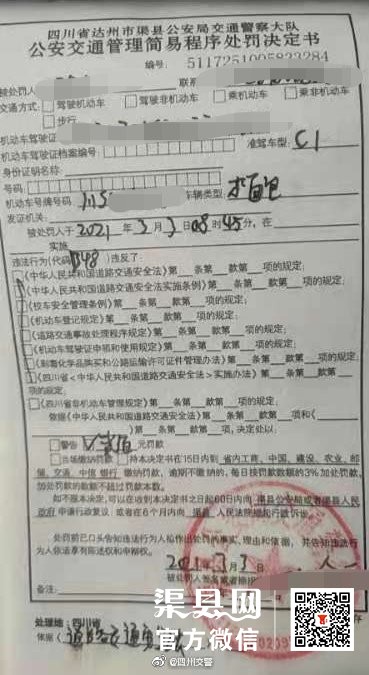 四川省达州市渠县公安局交通警察大队
公安交通管理简易程序处罚决定书
编号: 5117251005823284
被处罚人 联系
交通方式: 驾驶机动车 驾驶非机动车 乘机动车 乘非机动车
步行
机动车驾驶证
机动车驾驶证档案编号 准驾车型: C1
身份证明名称:
号码:
机动车号牌号码 川S 车辆类型:
发证机关:
被处罚人于 2021 年 3 月 3 日 08 时 45 分, 在
实施
违法行为(代码 ) 违反了:
《中华人民共和国道路交通安全法》第 条第 款第 项的规定;
《中华人民共和国道路交通安全法实施条例》第 条第 款第 项的规定;
《校车安全管理条例》第 条第 款第 项的规定;
《机动车登记规定》第 条第 款第 项的规定;
《道路交通事故处理程序规定》第 条第 款第 项的规定;
《机动车驾驶证申领和使用规定》第 条第 款第 项的规定;
《剧毒化学品购买和公路运输许可证件管理办法》第 条第 款第 项的规定;
《四川省<中华人民共和国道路交通安全法>实施办法》第 条第 款第 项的规定;
《四川省非机动车管理规定》第 条第 款第 项的规定;
依据《中华人民共和国道路交通安全法》第 条第 款第 项和《
》第 条第 款第 项的规定, 决定处以:
警告 元罚款
当场缴纳罚款 持本决定书在15日内到 省内工商、中国、建设、农业、邮
储、交通、中信 银行 缴纳罚款, 逾期不缴纳的, 每日按罚款数额的3%加处罚款,
加处罚款的数额不超过罚款本数。
如不服本决定, 可以在收到本决定书之日起60日内向 渠县公安局或者渠县人民
政府 申请行政复议; 或者在6个月内向 渠县 人民法院提起行政诉讼。
处罚前已口头告知违法行为人拟作出处罚的事实、理由和依据, 并告知违法行为
人依法享有陈述权和申辩权。
2021 年 3 月 3 日
被处罚人签名或者捺印
备注:
处理地: 四川省
依据《
渠县网
官方微信
@四州交警